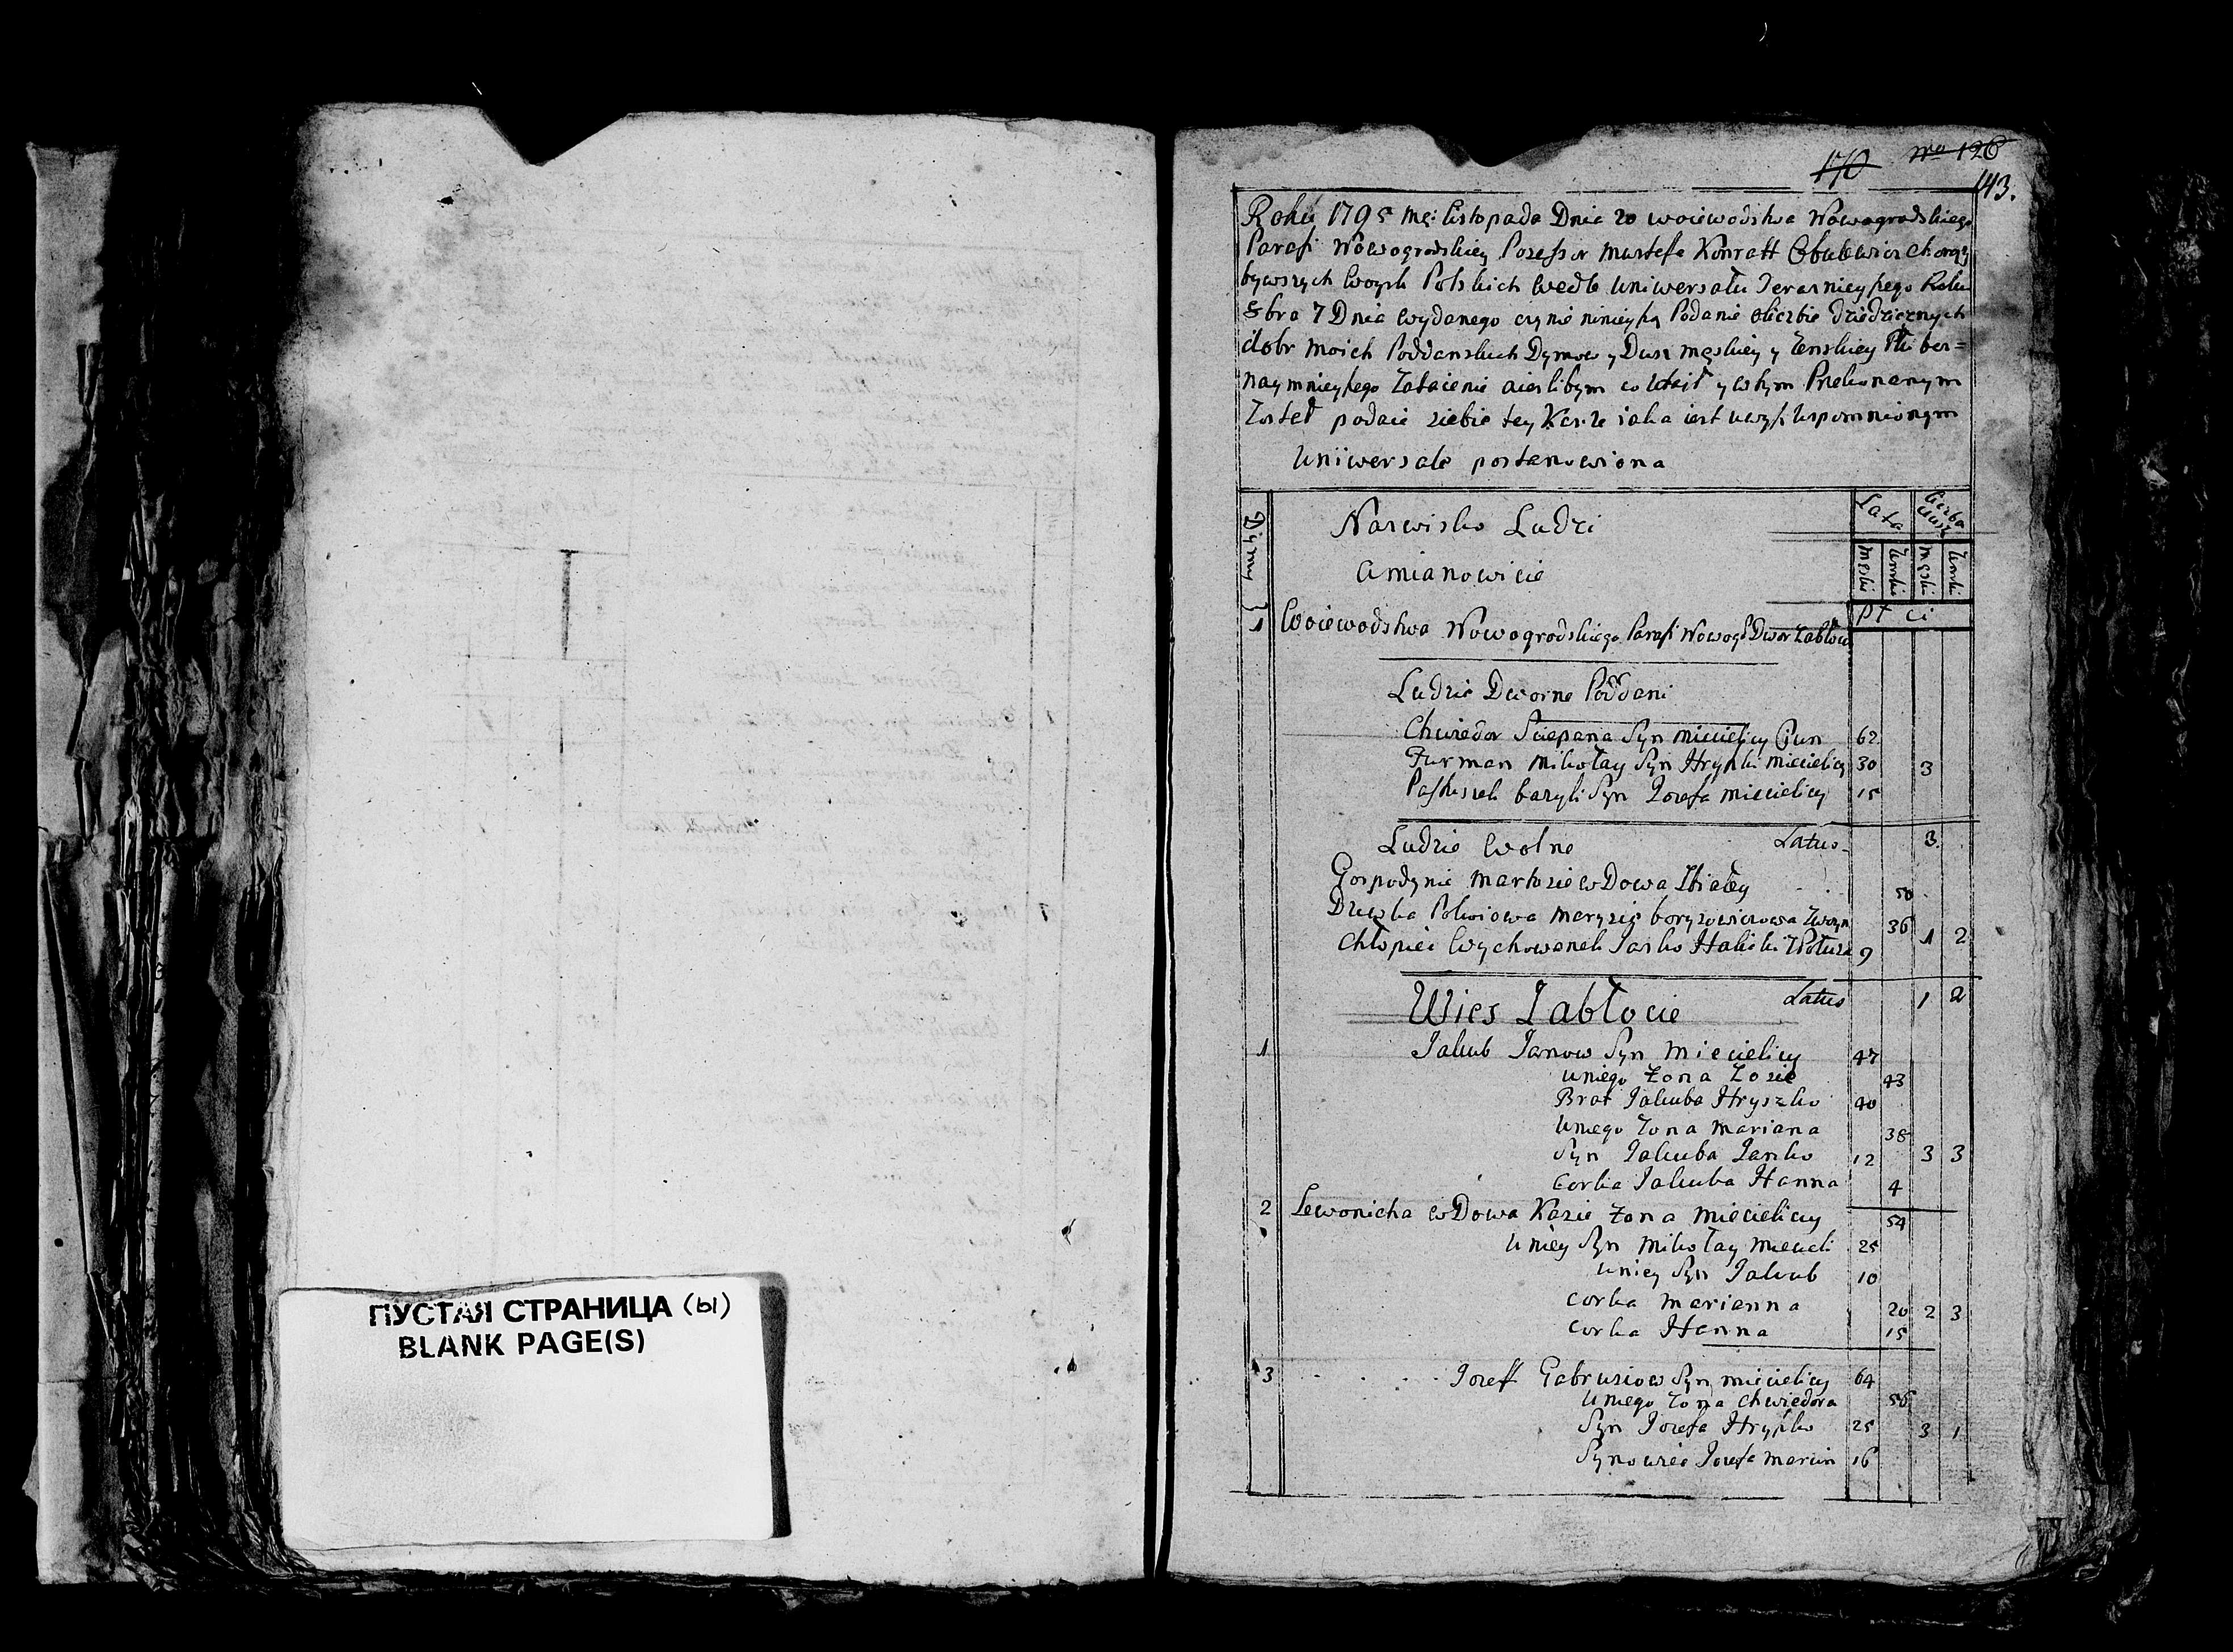 170 No 126
143.
Roku 1795 mę: listopada Dnia 20 woiewodstwa Nowogrodskiego
Parafi Nowogrodskiey Posessor Mustefa Konratt Chorązy
bywszych woysk Polskich wedle Uniwersału Terazнieyszego Roku
8bra 7 Dnia wydanego czynie ninieyszą Podanie oliczbie dziedzicznych
dobr moich Poddanskich Dymow y Dusz męskiey y żenskiey Płci bez=
naymnieyszego Zataienia aieslibym co utaił y wtym Przekonanym
Został podaie siebie tey Karze iaka iest uwyż Wspomnionym
Uniwersale postanowiona
Dymy
Nazwisko Ludzi
amianowicie
Lata
Liczba
Dusz
męski
żenski
męski
żenski
Pł ci
1 Woiewodstwa Nowogrodskiego Parafi Nowogr Dwor
Ludzie Dworne Poddani
Chwiedor Sciepana Syn Miecielicy Ciun 62
Furman Mikołay Syn Hryszki Miecielicy 30 3
Pastuszek bazyli Syn Jozefa Miecielicy 15
Ludzie Wolne Latus 3.
Gospodynie Martosie wDowa 50
Dziewka Marysie 36
Chłopiec Wychowanek Jasko 9 1 2
Wies Zabłocie Latus 1 2
1 Jakub Janow Syn Miecielicy 47
Uniego Zona Zosie 43
Brat Jakuba Hryszko 40
Uniego Zona Mariana 38
Syn Jakuba Jasko 12 3 3
Corka Jakuba Hanna 4
2 Lewonicha wDowa Kasie Zona Miecielicy 54
Uniey Syn Mikołay Mieciel: 25
Uniey Syn Jakub 10
Corka Marianna 20 2 3
Corka Hanna 15
3 Jozeff Gabrusiow Syn Miecielicy 64
Uniego Zona Chwiedora 56
Syn Jozefa Hryszko 25 3 1
Synowiec Jozefa Marcin 16
ПУСТАЯ СТРАНИЦА (Ы)
BLANK PAGE(S)